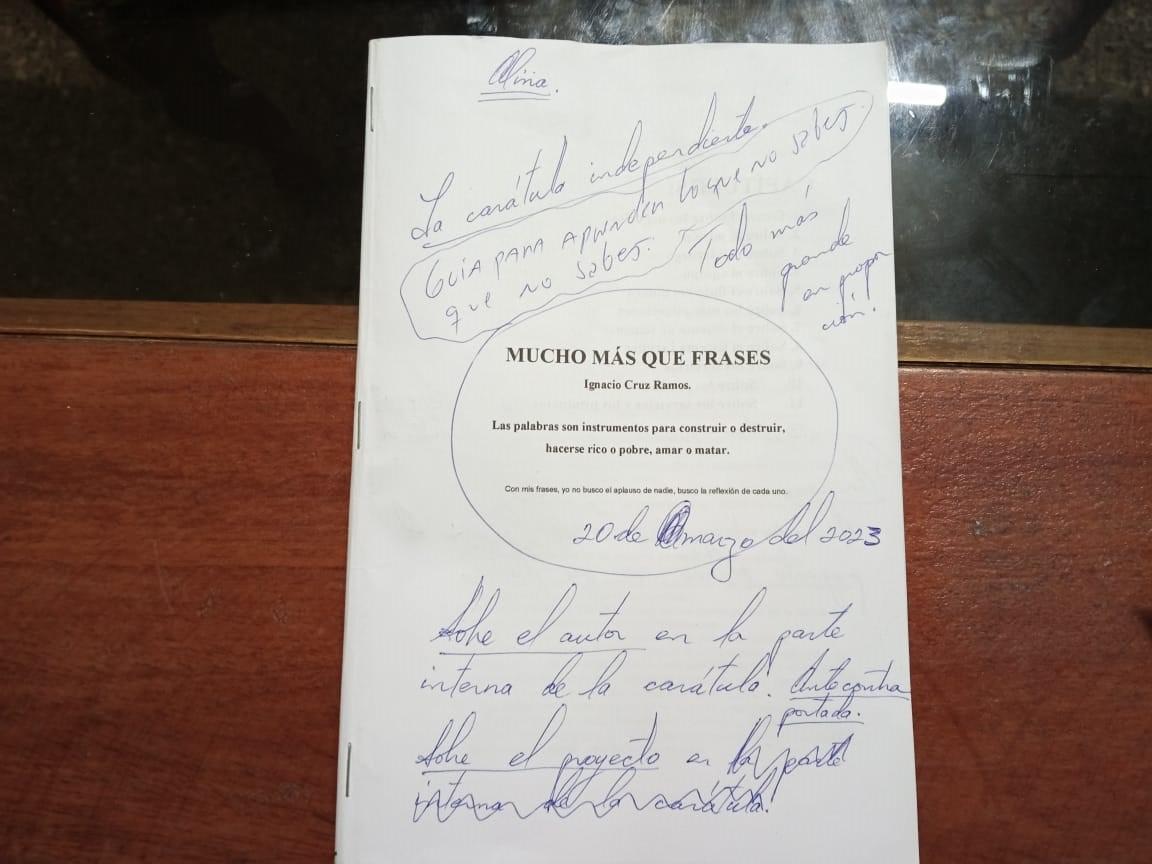 Aliria.
La carátula independiente.
GUÍA PARA APRENDER lo que no sabes
que no sabes.
Todo más
grande
en propor
ción!
MUCHO MÁS QUE FRASES
Ignacio Cruz Ramos.
Las palabras son instrumentos para construir o destruir,
hacerse rico o pobre, amar o matar.
Con mis frases, yo no busco el aplauso de nadie, busco la reflexión de cada uno.
20 de marzo del 2023
Sobre el autor en la parte
interna de la carátula. Antecontra
portada.
Sobre el proyecto en la parte
interna de la carátula!